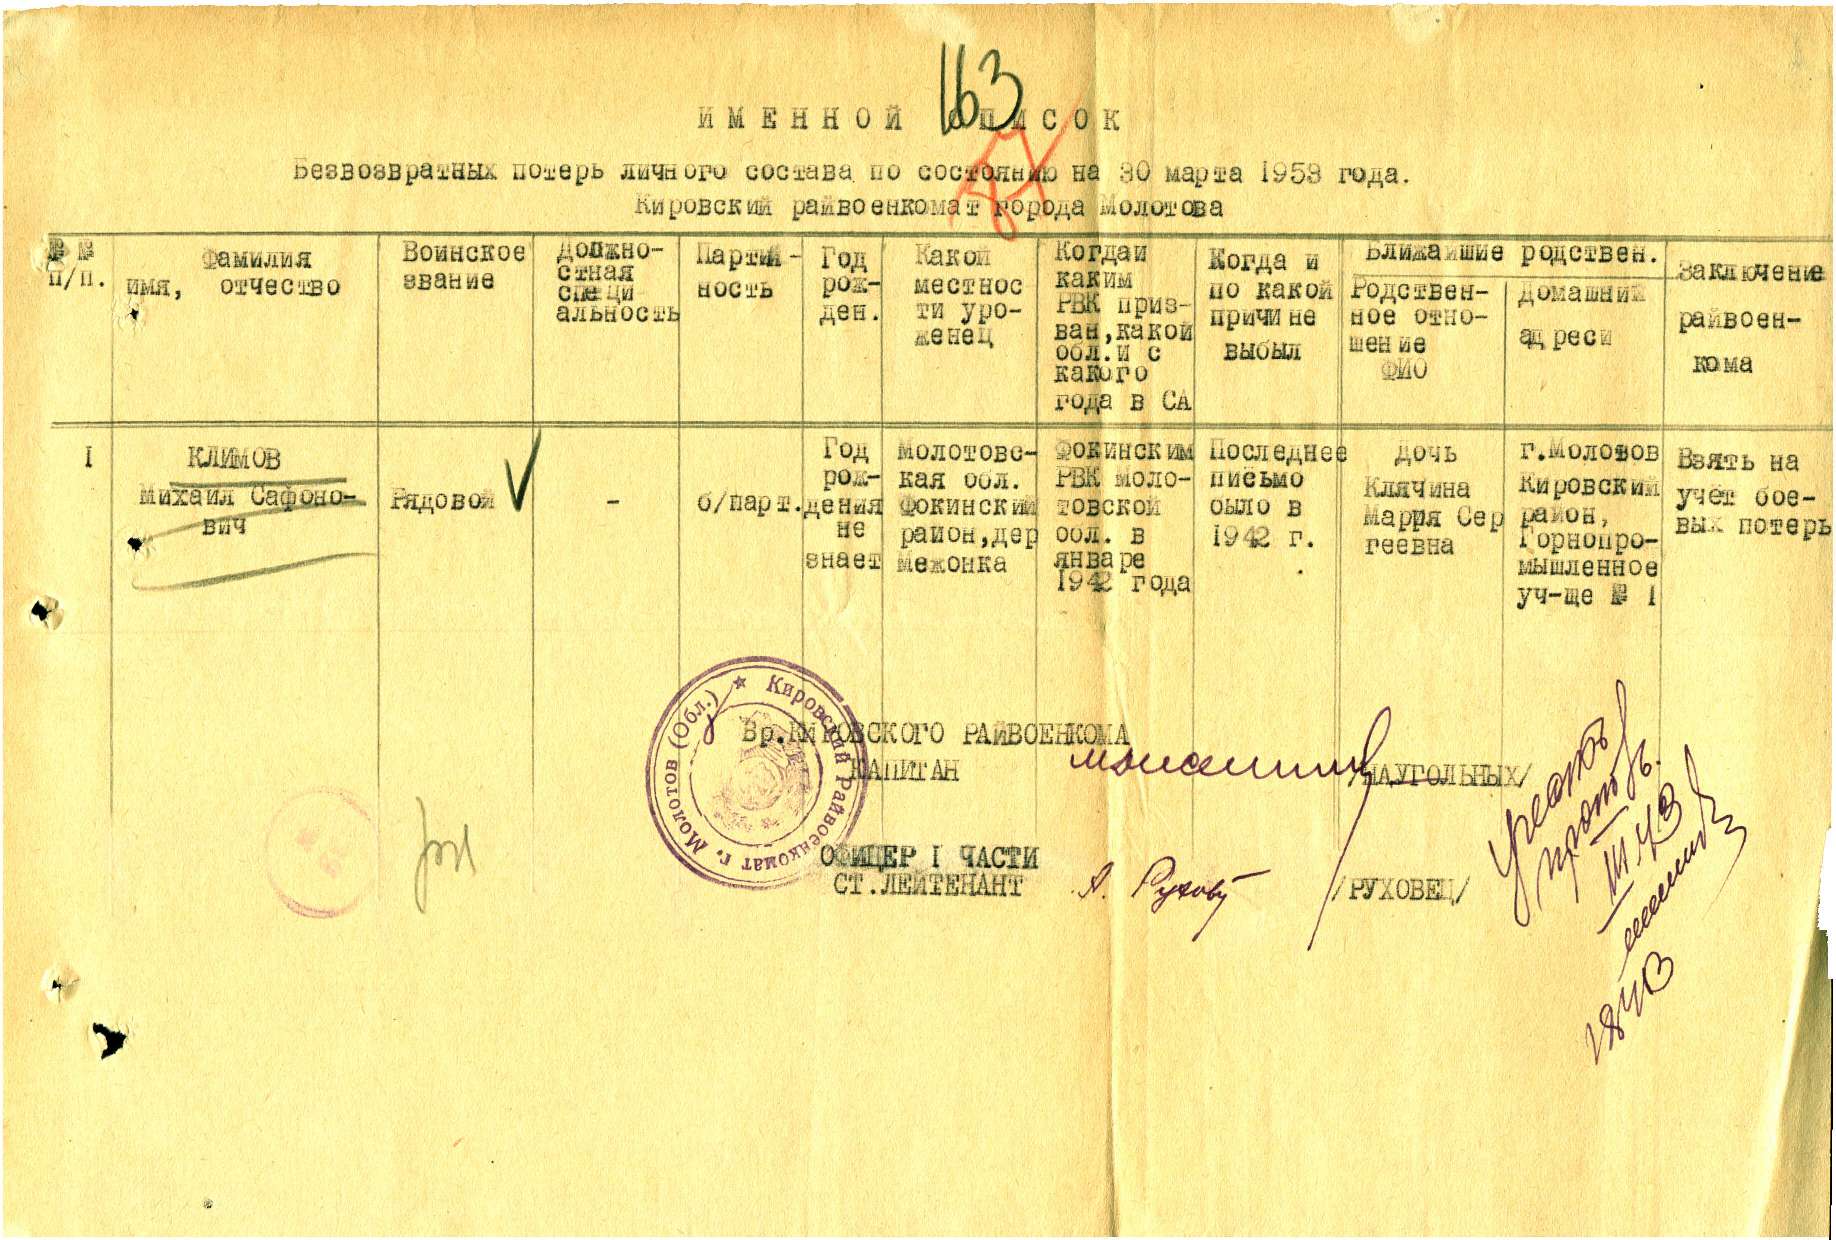 163
ИМЕННОЙ СПИСОК
Безвозвратных потерь личного состава по состоянию на 30 марта 1953 года.
Кировский райвоенкомат города Молотова
№ №
п/п.
Фамилия
имя, отчество
Воинское
звание
Должно-
стная
специ
альность
Партий-
ность
Год
рож-
ден.
Какой
местнос
ти уро-
женец
Когдаи
каким
РВК приз-
ван,какой
обл.и с
какого
года в СА
Когда и
по какой
причине
выбыл
Ближайшие родствен.
Родствен-
ное отно-
шение
ФИО
Домашний
адреси
Заключение
райвоен-
кома
I
КЛИМОВ
Михаил Сафоно-
вич
Рядовой
-
б/парт.
Год
рож-
дения
не
знает
Молотовс-
кая обл.
Фокинский
район,дер
Межонка
Фокинским
РВК Моло-
товской
обл. в
январе
1942 года
Последнее
письмо
было в
1942 г.
Дочь
Клячина
Мария Сер
геевна
г.Молотов
Кировский
район,
Горнопро-
мышленное
уч-ще № I
Взять на
учёт бое-
вых потерь
Вр.КИРОВСКОГО РАЙВОЕНКОМА
КАПИТАН
/НАУГОЛЬНЫХ/
ОФИЦЕР I ЧАСТИ
СТ.ЛЕЙТЕНАНТ
А. Руховец
/РУХОВЕЦ/
Кировский Райвоенкомат г. Молотов (Обл.)